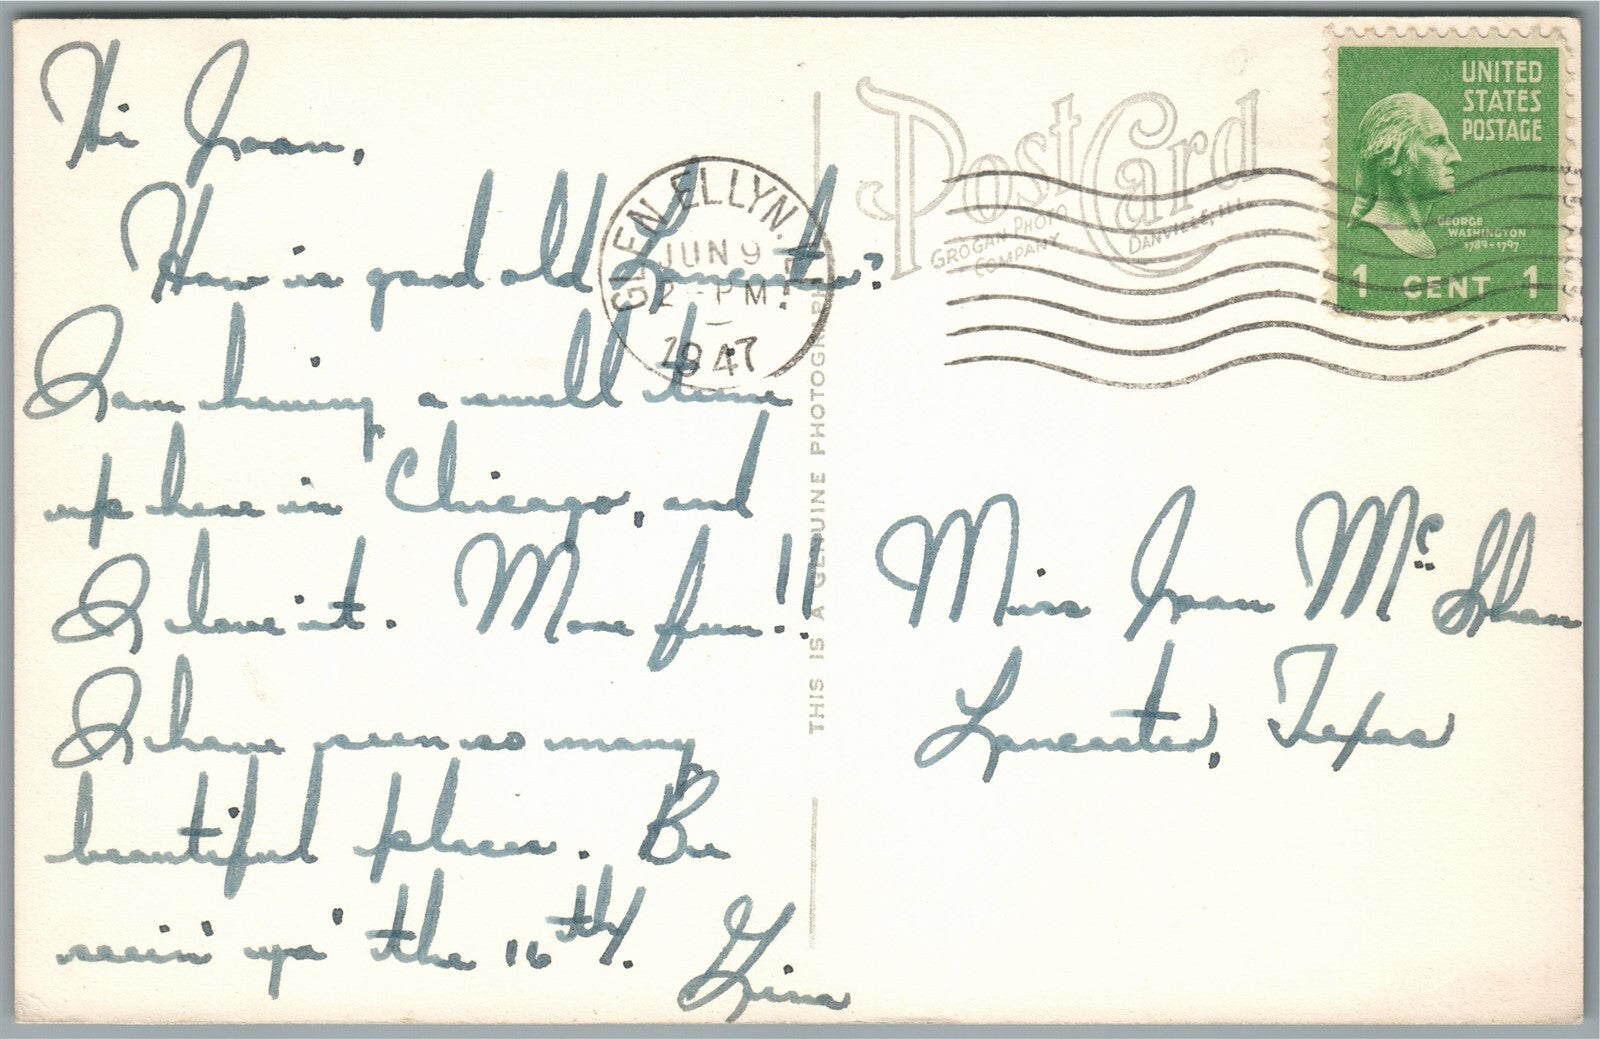 Hi Joan,
How is good old Lancaster?
I am having a swell time
up here in Chicago, and
I love it. More fun!!
I have seen so many
beautiful places. Be
seein' ya' the 16th.
GLEN ELLYN.
JUN 9
2 - PM
1947
THIS IS A GENUINE PHOTOGRAPH
Post Card
GROGAN PHOTO
COMPANY
DANVILLE, ILL.
UNITED
STATES
POSTAGE
GEORGE
WASHINGTON
1789-1797
1 CENT 1
Miss Joan Mc Shan
Lancaster, Texas